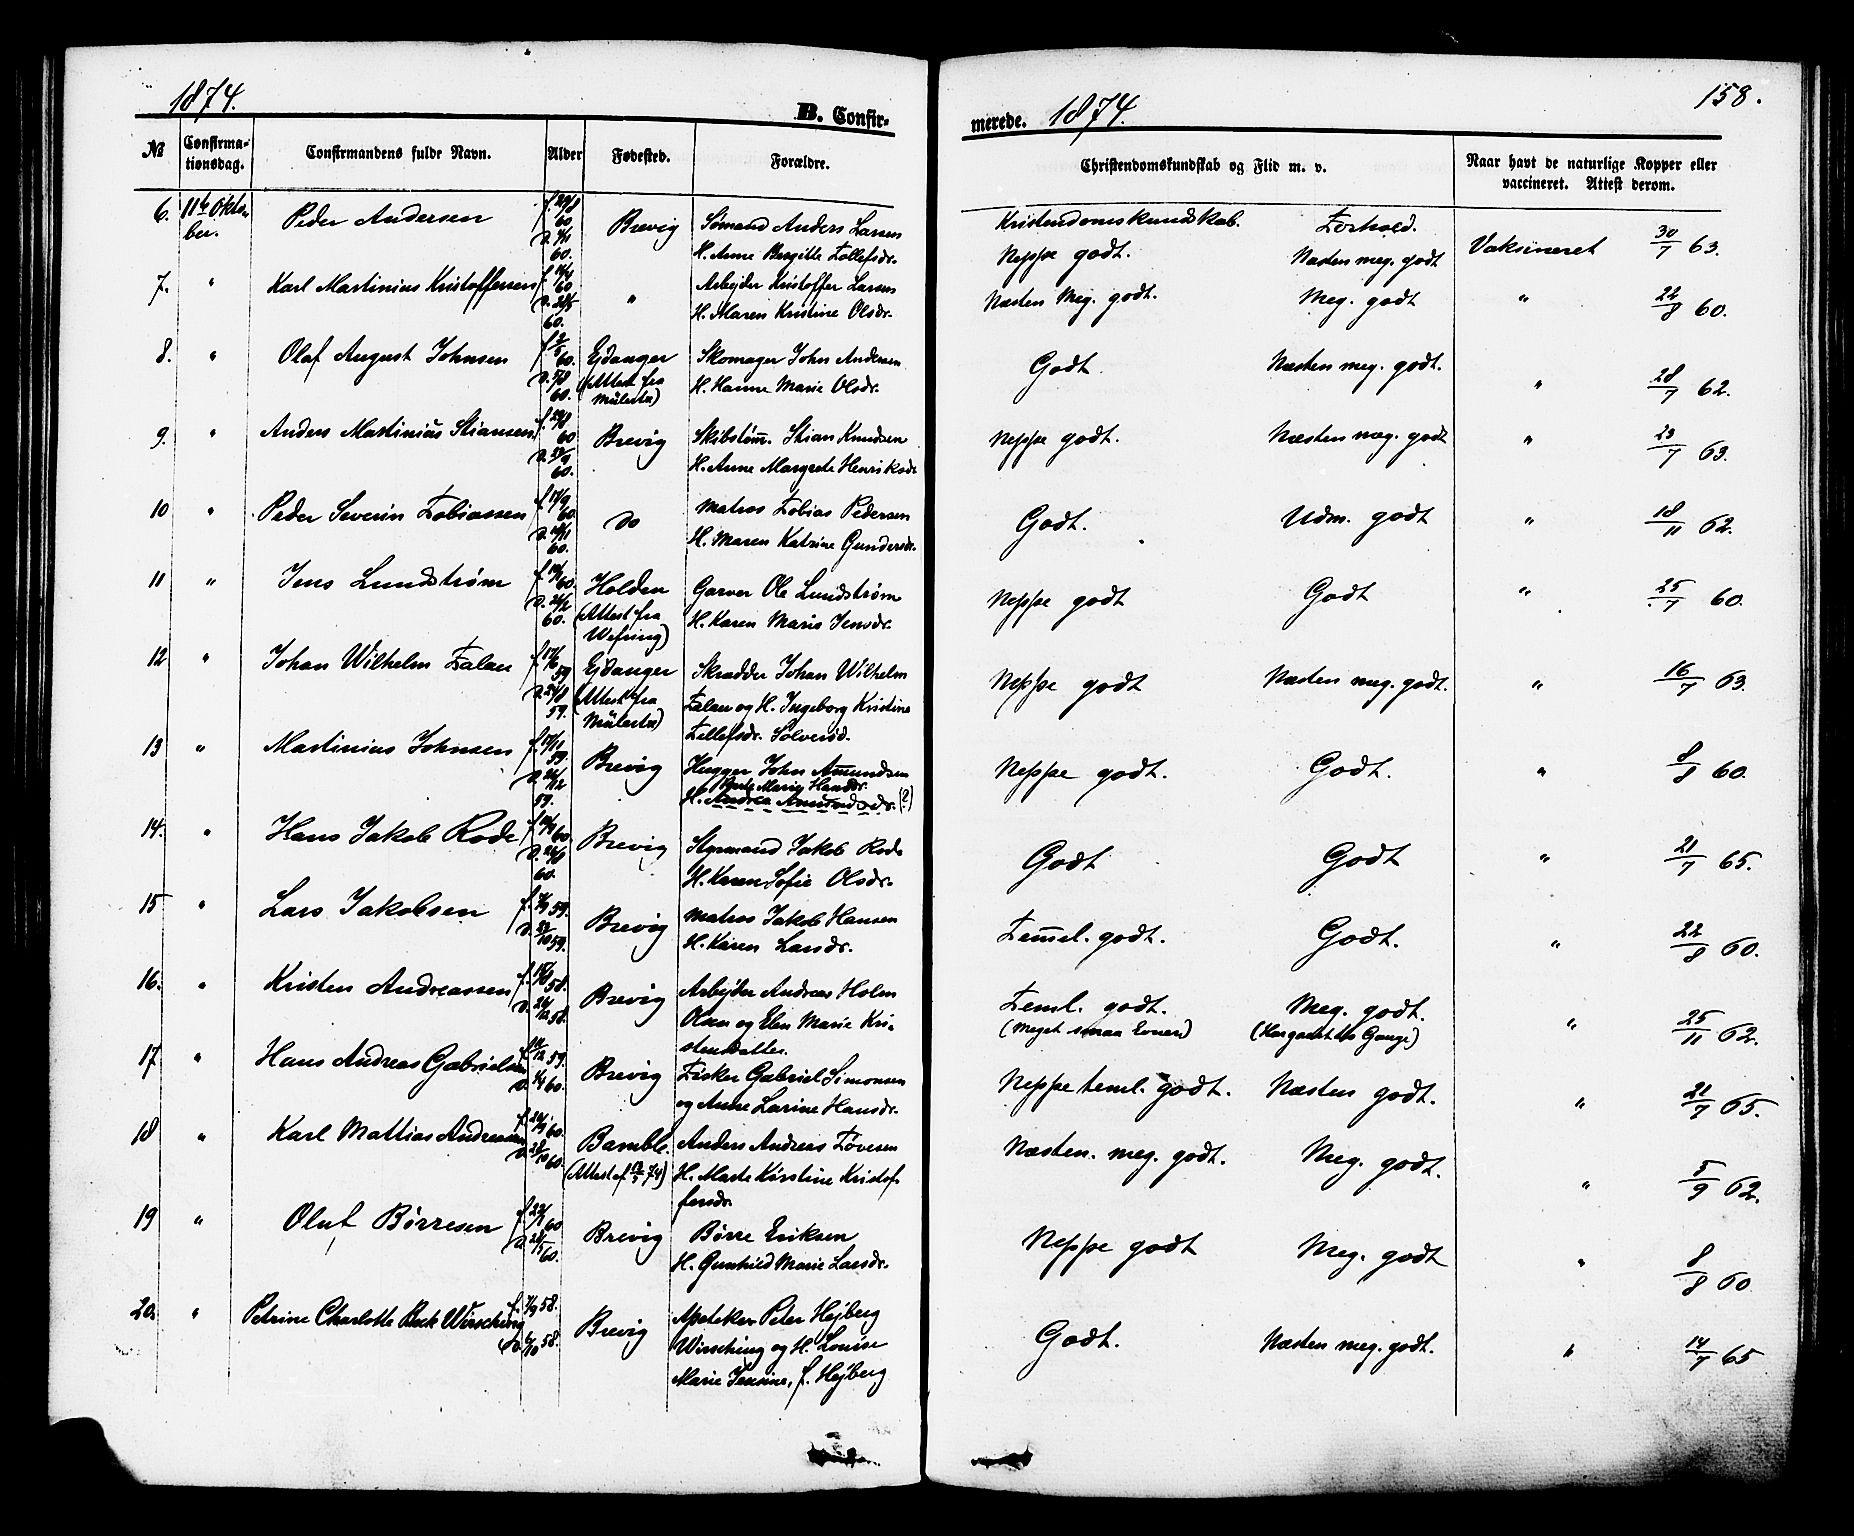 1874.
B. Confir-
merede. 1874.
158.
№ Confirma-tionsdag. Confirmandens fulde Navn. Alder Fødested. Forældre. Christendomskundskab og Flid m. v. Naar havt de naturlige Kopper eller vaccineret. Attest derom.
Kristendomskundskab. Forhold.
6. 11te Oktober. Peder Andersen 60. 60. Brevig Sømand Anders Larsen
H. Anne Birgitte Tollefsdr. Neppe godt. Næsten meg. godt Vaksineret 30/7 63.
7. " Karl Martinius Kristoffersen 60 60. " Arbejder Kristoffer Larsen
H. Maren Kristine Olsdr. Næsten Meg. godt. Meg. godt " 22/8 60.
8. " Olaf August Johnsen 60. 60. Ejdanger Skomager John Andersen
(Attest fra H. Hanne Marie Olsdr. Godt Næsten meg. godt. " 28/7 62.
9. " Anders Martinius Stiansen 60 60. Brevig Skibstøm. Stian Knudsen
H. Anne Margrete Henriksdr. Neppe godt. Næsten meg. godt " 23/7 63.
10 " Peder Severin Tobiassen f. 17/9 60. 60. do Matros Tobias Pedersen
H. Maren Katrine Gundersdr. Godt. Udm. godt " 18/11 62.
11 " Jens Lundstrøm 60. 60. Holden Garver Ole Lundstrøm
(Attest fra H. Karen Marie Jensdr. Neppe godt Godt " 25/7 60.
12 " Johan Wilhelm Falan 59 59. Ejdanger Skrædder Johan Wilhelm
(Attest fra Falan og H. Ingeborg Kristine
Tellefsdr. Neppe godt Næsten meg. godt. " 16/7 63.
13 " Martinius Johnsen f. 17/11 59. 59. Brevig Hugger John Amundsen
Marie Hansdr.
H. Andrea Amundsdr. (?) Neppe godt. Godt. " 8/8 60.
14. " Hans Jakob Rode 60. 60. Brevig Styrmand Jakob Rode
H. Karen Sofie Olsdr. Godt Godt " 21/7 65.
15 " Lars Jakobsen 59. 59. Brevig Matros Jakob Hansen
H. Karen Larsdr. Temmel. godt. Godt. " 22/8 60.
16. " Kristen Andreassen 58. 58. Brevig Arbejder Andreas Holm
Olsen og Elen Marie Kri-
stensdatter. Teml. godt. Meg. godt.
(Meget smaa Evner) " 25/11 62.
17 " Hans Andreas Gabrielsen 59. 60. Brevig Fisker Gabriel Simonsen
og Anne Larine Hansdr. Neppe teml. godt. Næsten godt. " 21/7 65.
18 " Karl Mattias Andreassen 60. 60. Bamble. Anders Andreas Tovesen
H. Marte Kirstine Kristof-
fersdr. Næsten. meg. godt. Meg. godt. " 5/9 62.
19 " Oluf Børresen 60 60. Brevig Børre Eriksen
H. Gunhild Marie Larsdr. Neppe godt Meg. godt " 8/8 60
20. " Petrine Charlotte Beck Wirsching 58. 58. Brevig Apoteker Peter Højberg
Wirsching og H. Louise
Marie Jensine, f. Højberg Godt. Næsten meg. godt. " 14/7 65